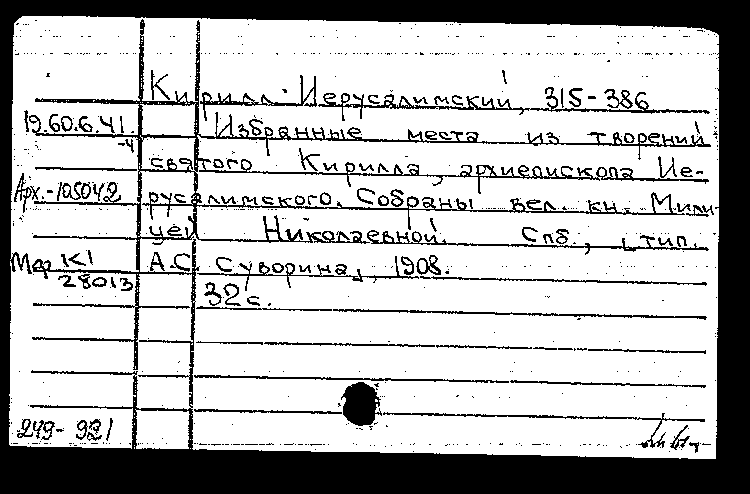 Кирилл Иерусалимский, 315-386
19.60.6.41 Избранные места из творений
-4
святого Кирилла, архиепископа Ие-
Арх.-105042 русалимского. Собраны вел. кн. Мили-
цей Николаевной. Спб., [тип.
Мф К1/28013 А.С. Суворина], 1908.
32 с.
249-921